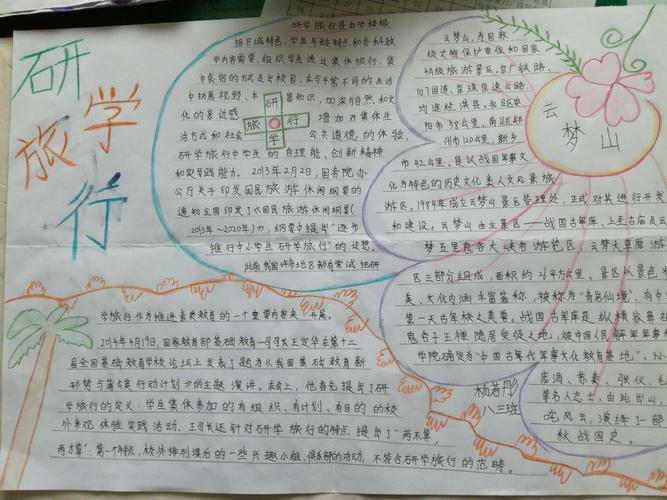 研
学
旅
行
研学旅行是由学校根
据区域特色、学生年龄特点和各科教
学内容需要，组织学生通过集体旅行、集
中食宿的方式走出校园，在与平常不同的生活
中拓展视野、丰富知识，加深与自然和文
化的亲近感
增加对集体生
活方式和社会公共道德的体验，
研学旅行中学生的自理能、创新精神
和实践能力。2013年2月2日，国务院办
公厅关于印发国民旅游休闲纲要的
通知全国印发了《国民旅游休闲纲要(
2013年~2020年)》，纲要中提出"逐步
推行中小学生研学旅行"的设想。
此前我国许多地区都有尝试把研
学旅行作为推进素质教育的一个重要内容来开展。
研
旅
行
学
2014年4月19日，国家教育部基础教育一司司长王定华在第十二
届全国基础教育学校论坛上发表了题为《我国基础教育新
形势与蒲公英行动计划》的主题演讲。在会上，他首先提出了研
学旅行的定义：学生集体参加的有组织、有计划、有目的的校
外参观体验实践活动。王司长还针对研学旅行的特点，提出了"两不算，
两才算"：第一个特点，校外排列课后的一些兴趣小组、俱乐部的活动，不符合研学旅行的范畴。
云梦山
云梦山，为国家
级文物保护单位和国家
4A级旅游景区。京广铁路、
107国道、京珠京速公路
均途经淇县。北距安
阳市58公里，南距郑
州市120公里，新乡
市42公里。是以战国军事文
化为特色的历史文化类人文风景旅
游区，1984年成立云梦山景区管理处，正式对其进行开发
和建设。云梦山由主景区——战国古军库、上圣古庙及云
梦五里鬼谷大峡谷游览区、云梦大草原游
区三部分组成，面积约
平方公里。景区以景色
美，文化内涵丰富著称，被称为"青岩仙境"，有中
第一大古军校之美誉。战国古军库是纵横家鼻祖
鬼谷子王禅隐居受徒之地，被中国人民解放军军事
学院确定为"中国古军代军事文化教育基地"。
庞涓、苏秦、张仪、毛
著名人志士，由此出山，
叱风云，演绎了一部
秋战国史。
杨若彤
八三班